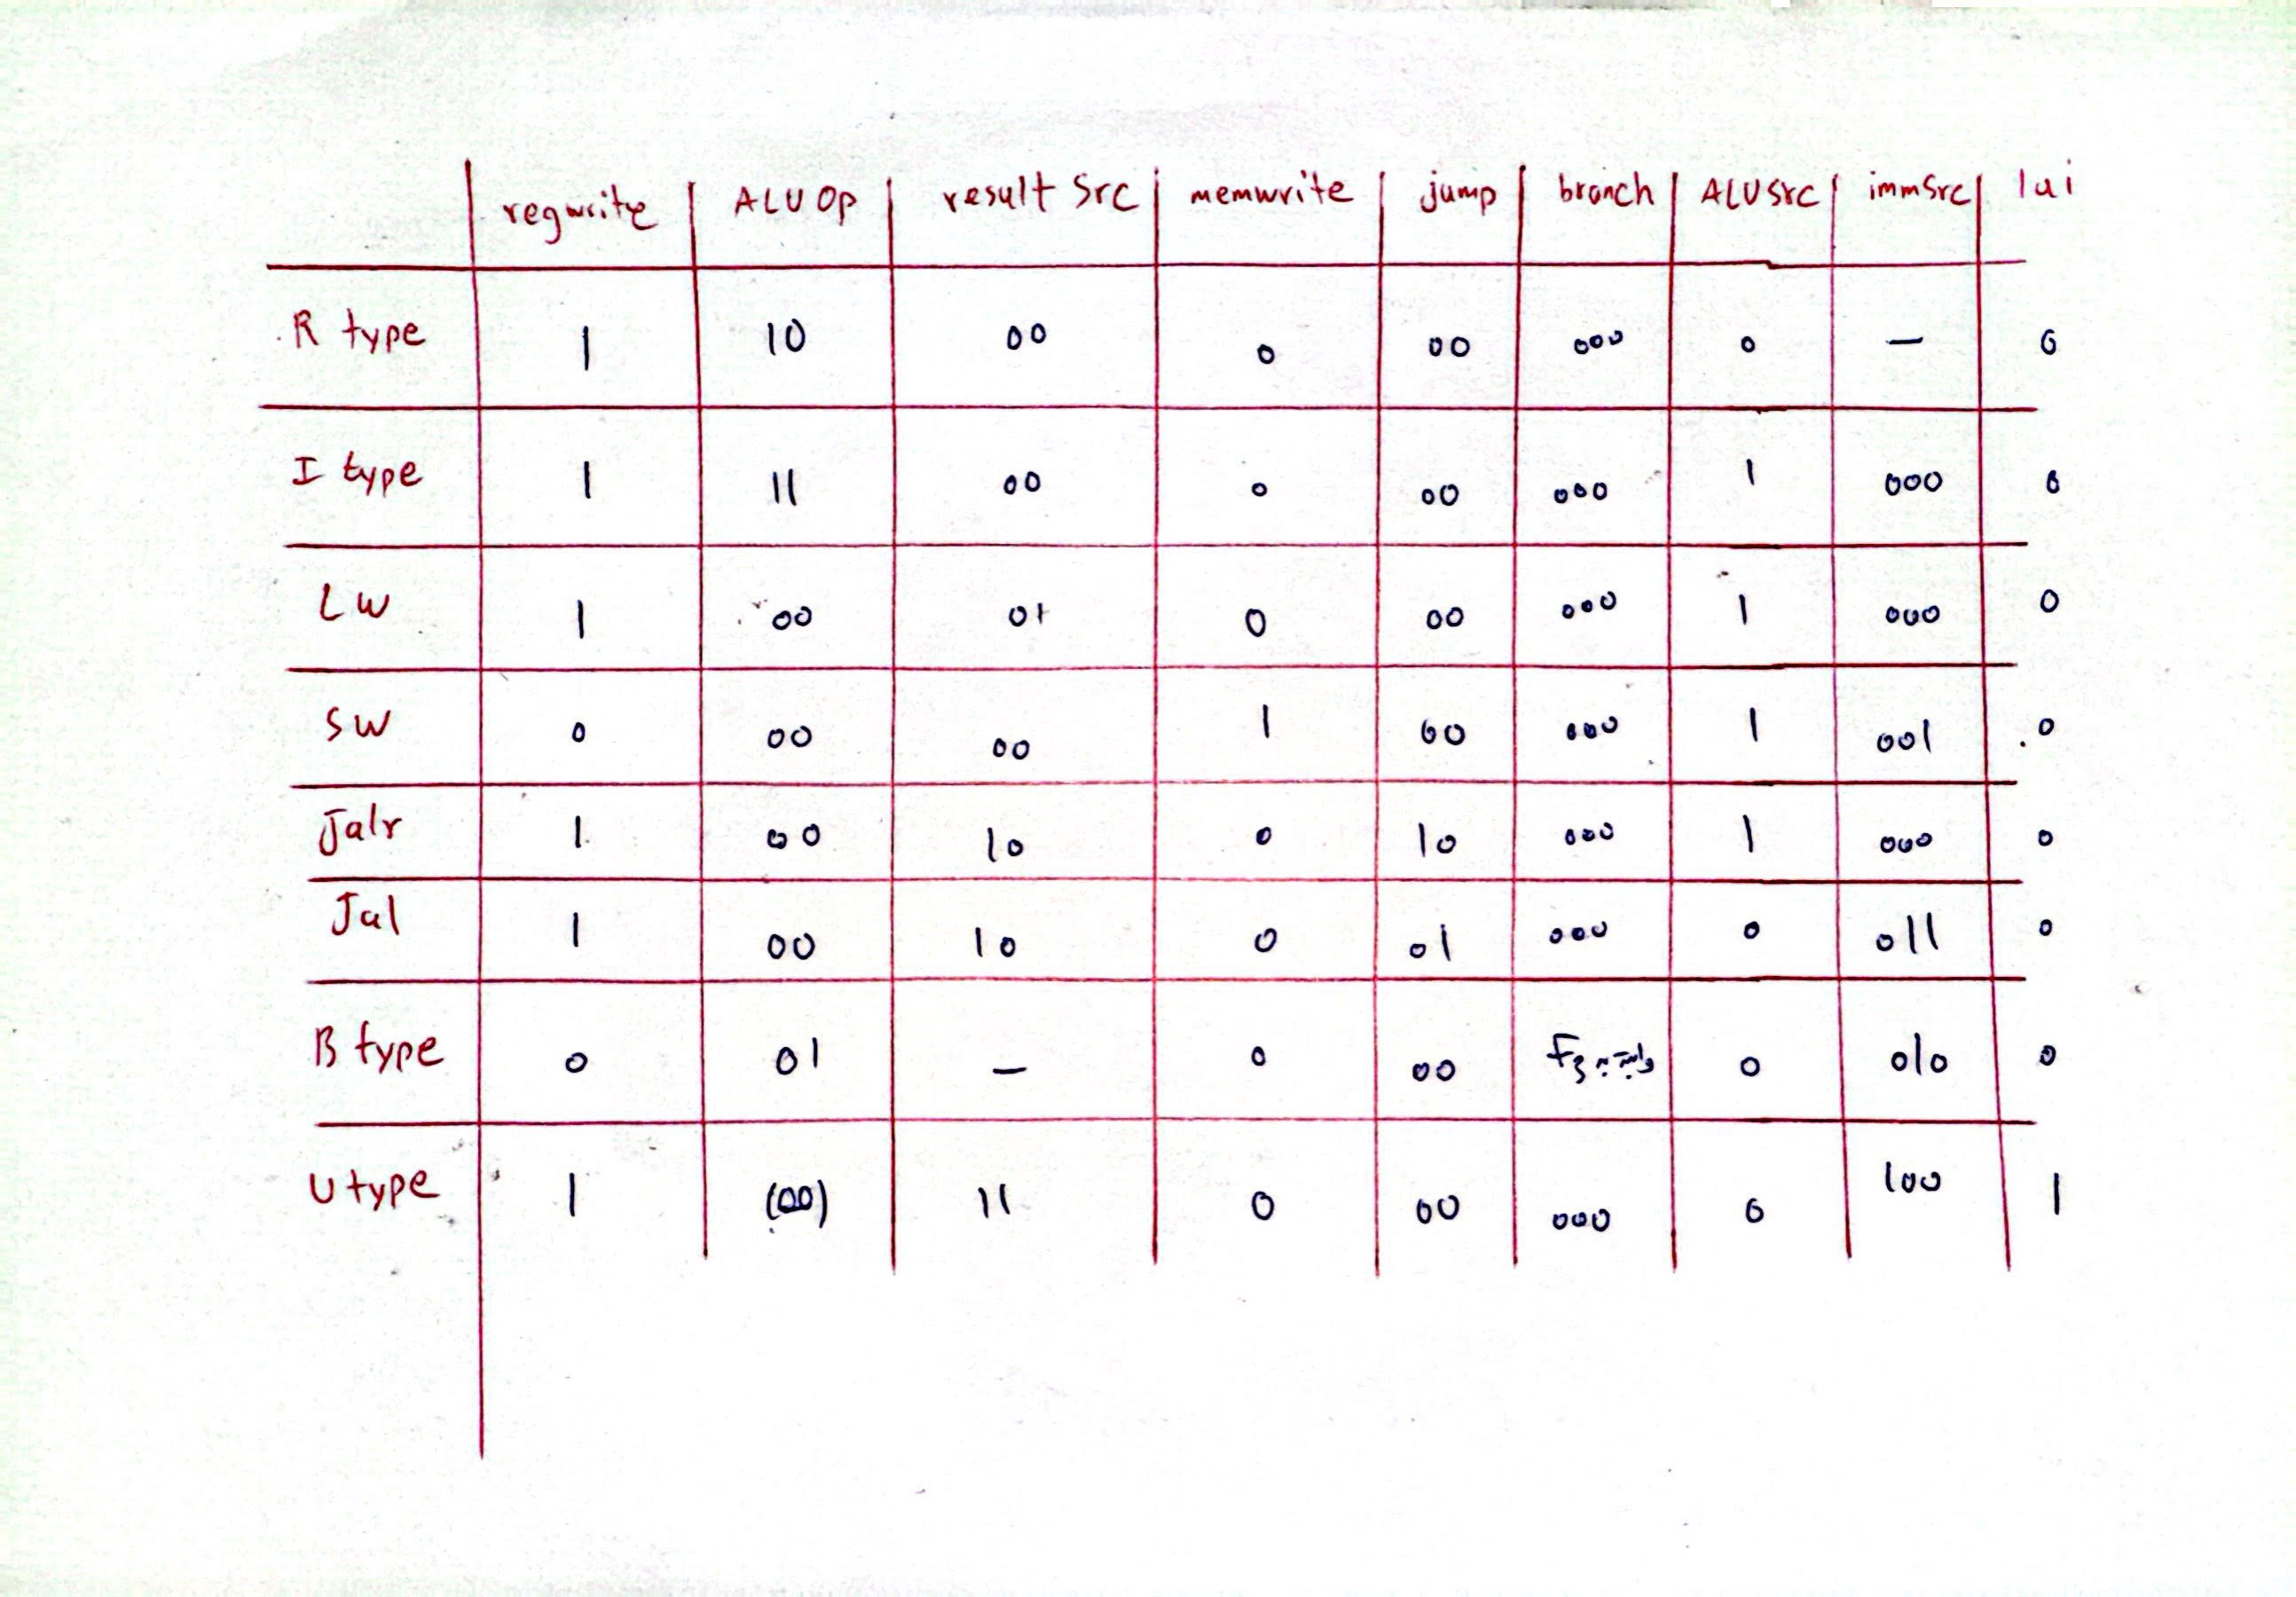 regwrite ALUOp result Src memwrite jump branch ALUSrc immSrc lui
R type 1 10 00 0 00 000 0 — 0
I type 1 11 00 0 00 000 1 000 0
LW 1 00 01 0 00 000 1 000 0
SW 0 00 00 1 00 000 1 001 0
Jalr 1 00 10 0 10 000 1 000 0
Jal 1 00 10 0 01 000 0 011 0
B type 0 01 — 0 00 وابسته به F3 0 010 0
U type 1 (00) 11 0 00 000 0 100 1